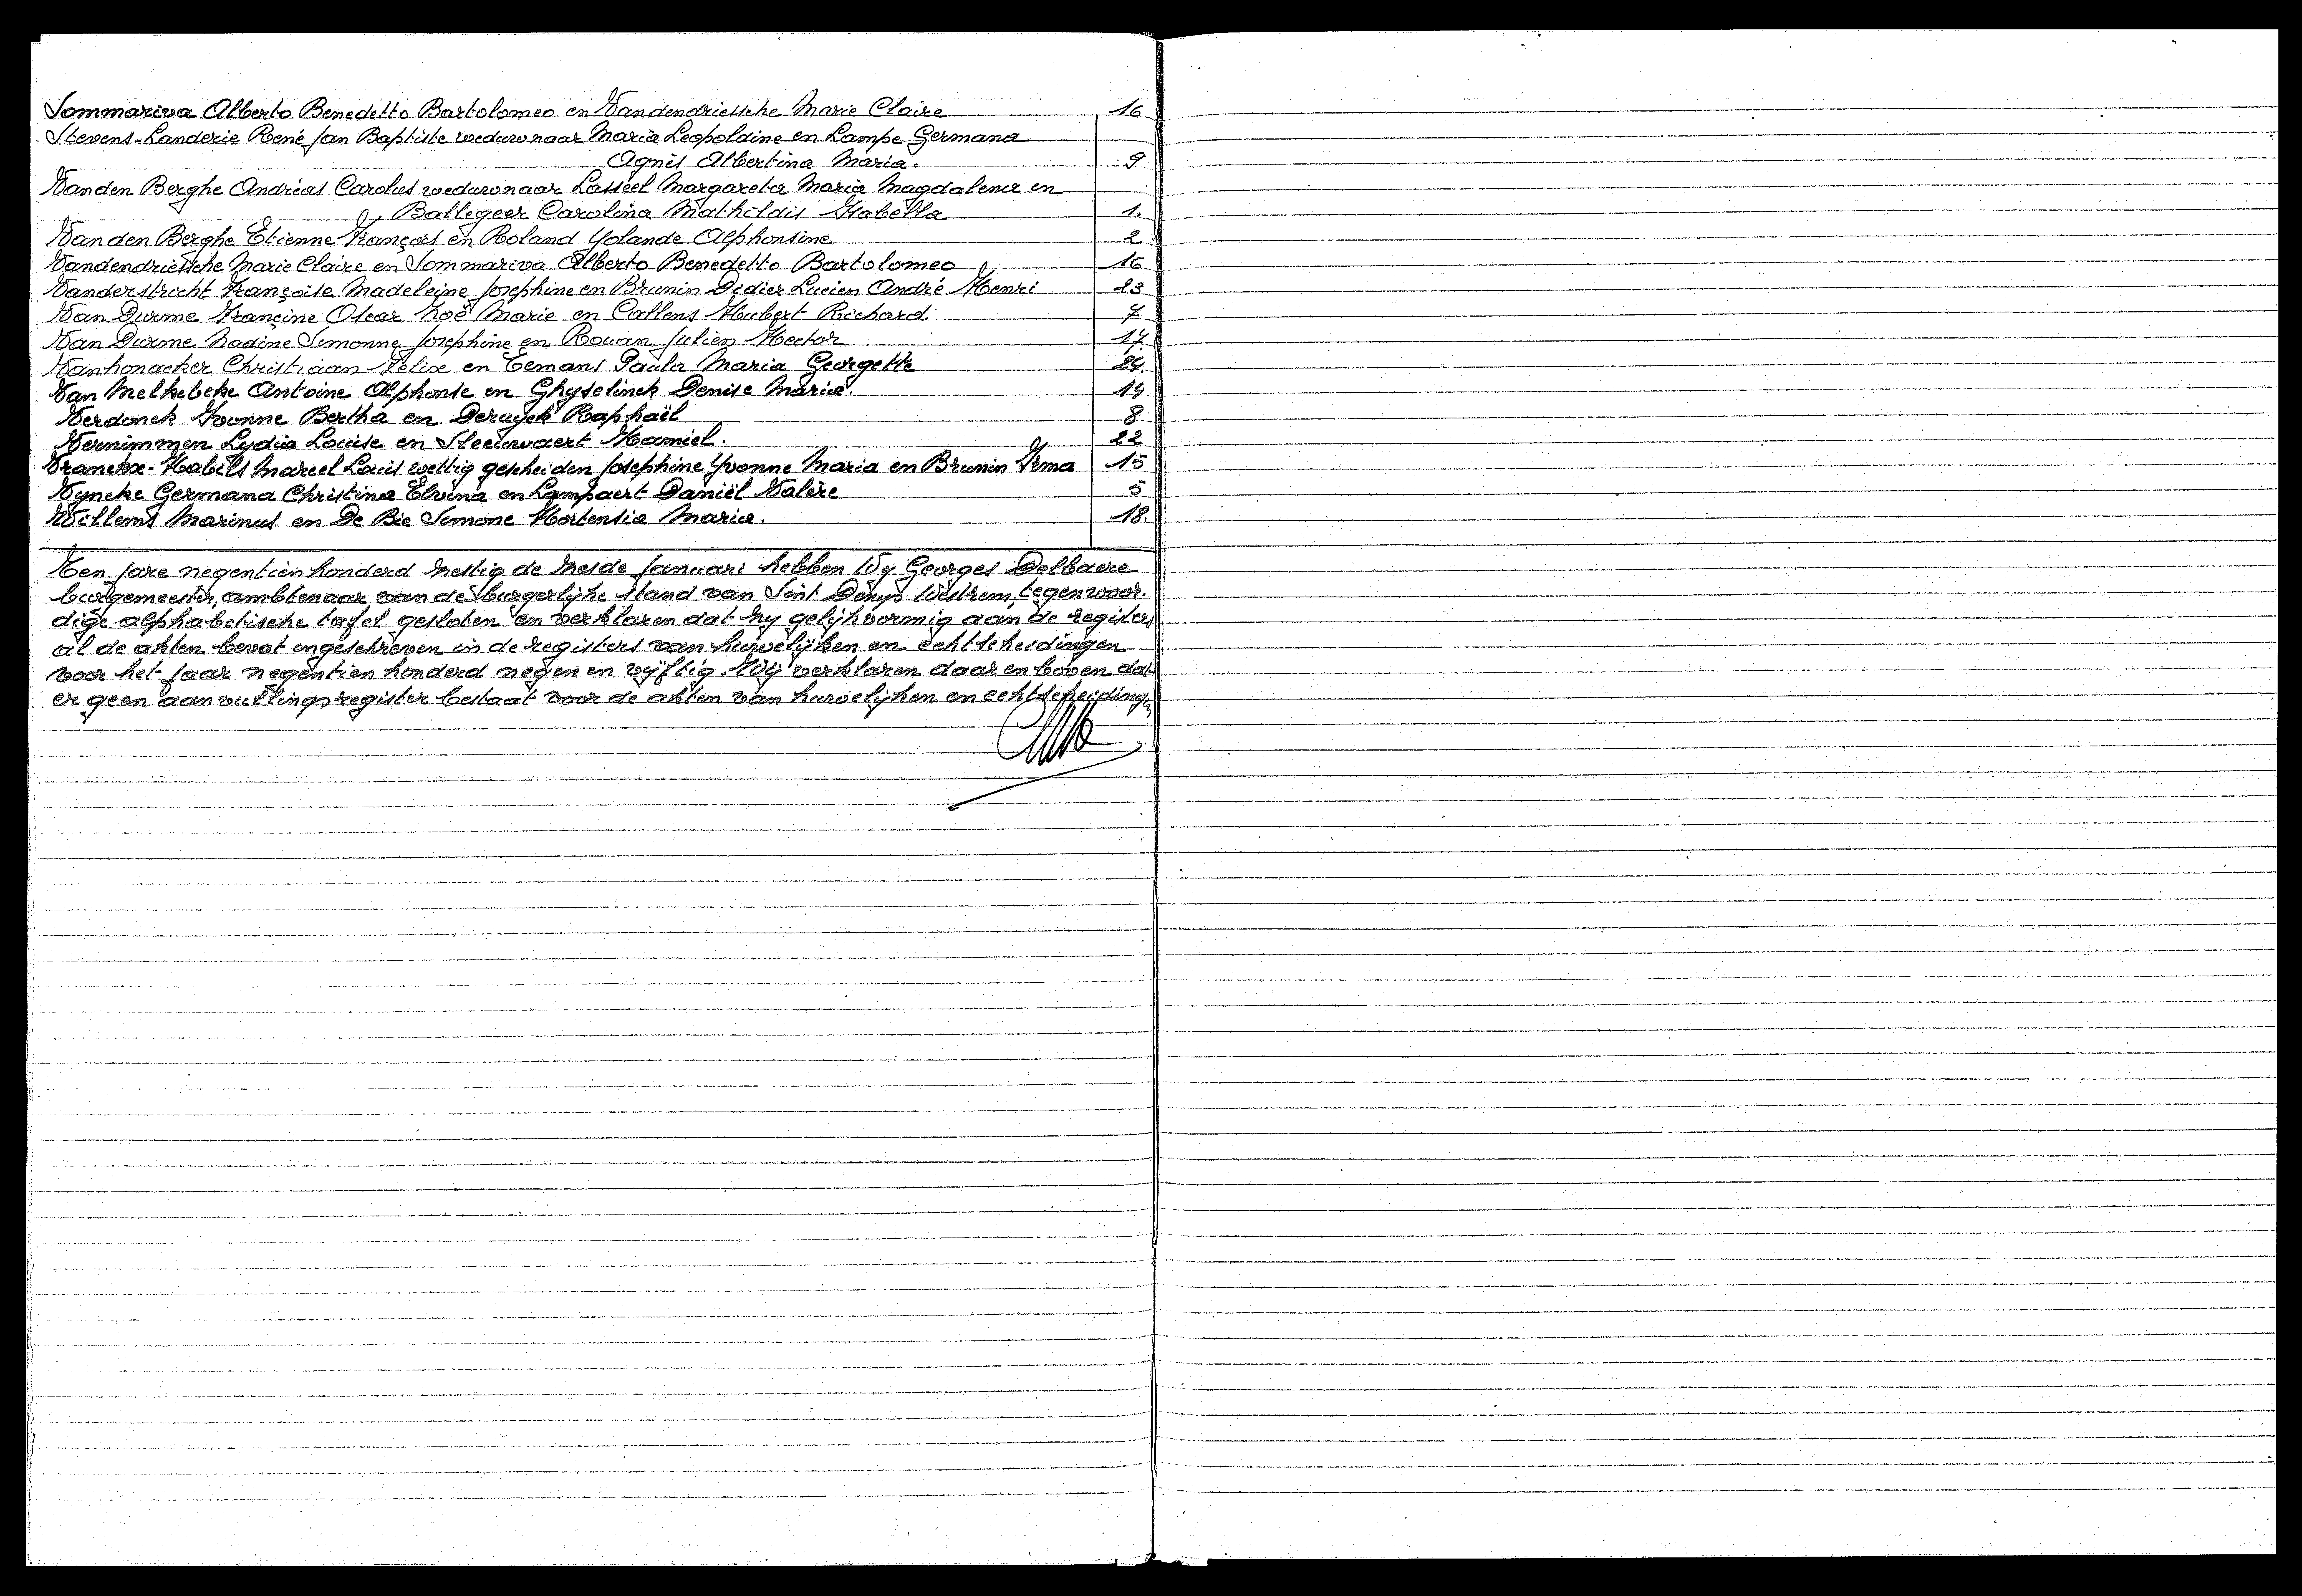 Sommariva Alberto Benedetto Bartolomeo en Vandendriessche Marie Claire 16
Stevens-Landerie René Jan Baptiste weduwnaar Maria Leopoldine en Lampe Germana
Agnès Albertina Maria. 9
Vanden Berghe Andréas Carolus weduwnaar Lasseel Margareta Maria Magdalena en
Ballegeer Carolina Mathildis Isabella 1.
Van den Berghe Etienne François en Roland Yolande Alphonsine 2
Vandendriessche Marie Claire en Sommariva Alberto Benedetto Bartolomeo 16
Vanderstricht Françoise Madeleine Josephine en Brunin Didier Lucien André Henri 23
Van Durme Françine Oscar Noë Marie en Callens Hubert Richard. 7
Van Durme Nadine Simonne Josephine en Rouan Julien Hector 17.
Vanhonacker Christiaan Félix en Eemans Paula Maria Georgette 24.
Van Melkebeke Antoine Alphonse en Ghyselinck Denise Maria. 14
Verdonck Yvonne Bertha en Deruyck Raphaël 8
Vernimmen Lydia Louise en Steeurvaert Kamiel. 22
Vranckx-Habils Marcel Louis wettig gescheiden Josephine Yvonne Maria en Brunin Irma 15
Vyncke Germana Christina Elvina en Lampaert Daniël Valère 5
Willems Marinus en De Bie Simone Hortensia Maria. 18.
Ten jare negentien honderd zestig de zesde Januari hebben Wij Georges Delbaere
burgemeester, ambtenaar van de burgerlijke stand van Sint Denijs Westrem, tegenwoor-
dige alphabetische tafel gesloten en verklaren dat zij gelijkvormig aan de registers
al de akten bevat ingeschreven in de registers van huwelijken en echtscheidingen
voor het jaar negentien honderd negen en vijftig. Wij verklaren daar en boven dat
er geen aanvullingsregister bestaat voor de akten van huwelijken en echtscheidingen